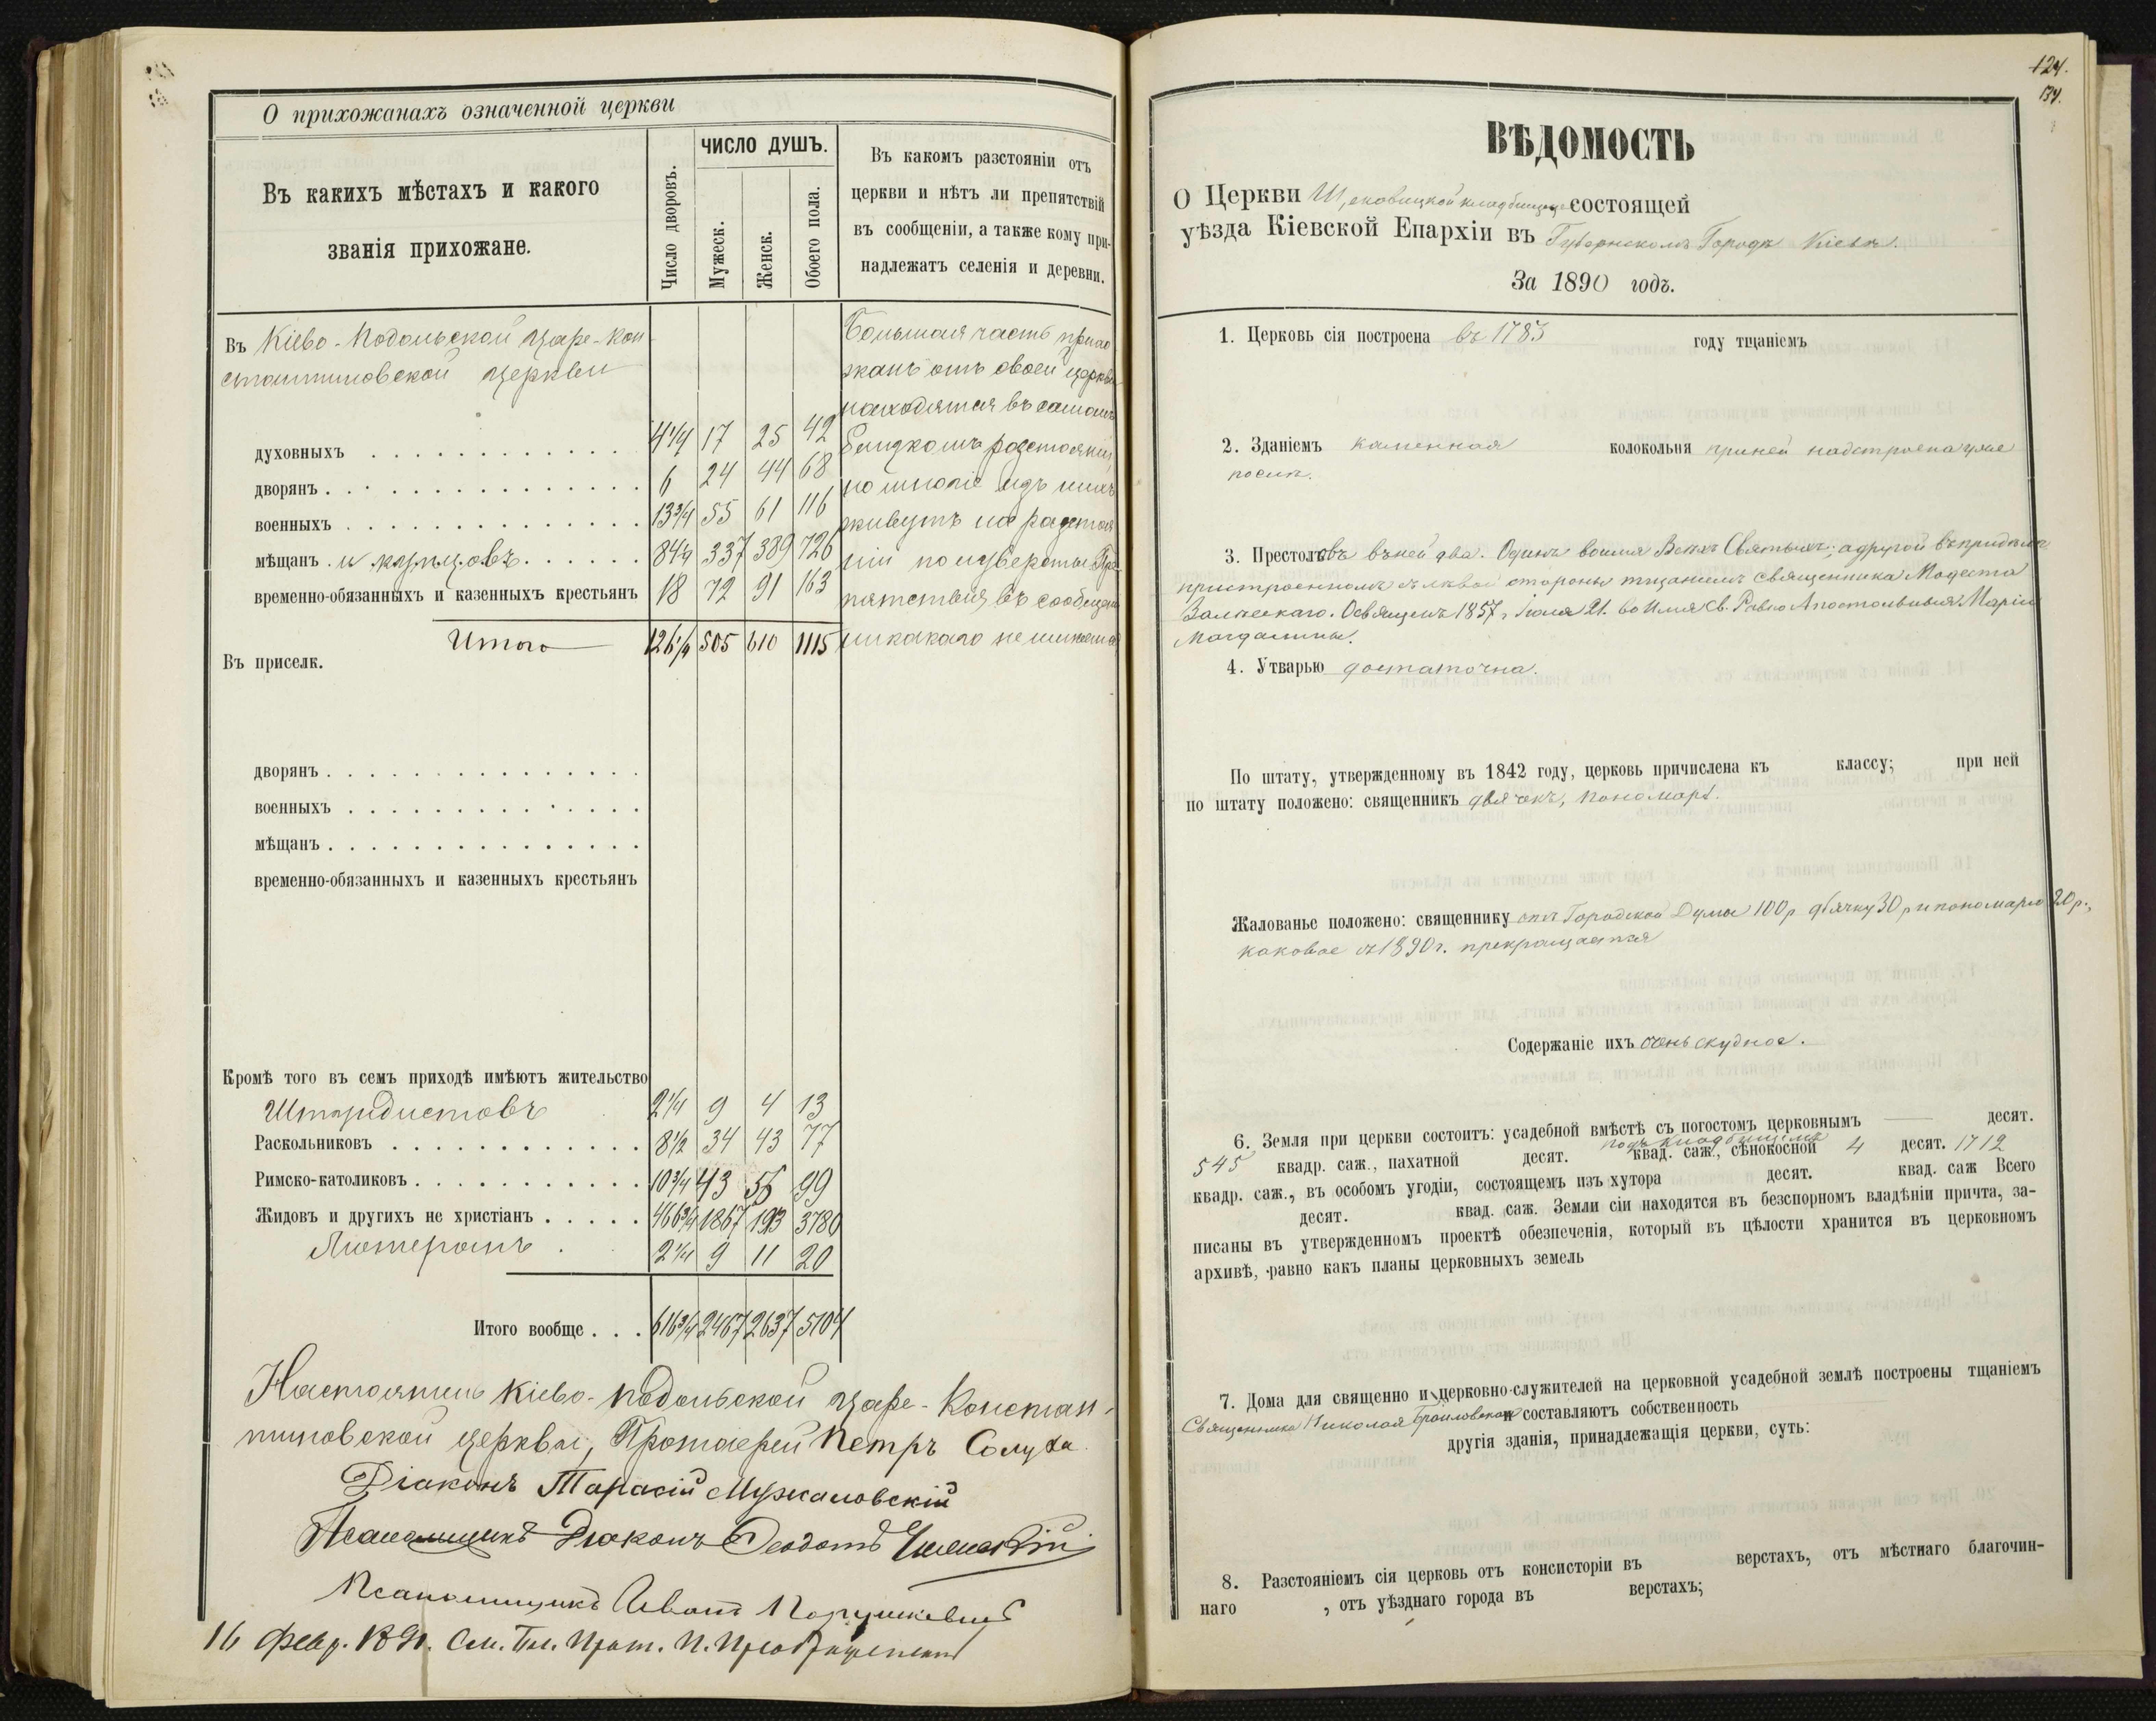 О прихожанахъ означенной церкви
Въ какихъ мѣстахъ и какого
званія прихожане.
Число дворовъ.
ЧИСЛО ДУШЪ.
Мужеск.
Женск.
Обоего пола.
Въ какомъ разстояніи отъ
церкви и нѣтъ ли препятствій
въ сообщеніи, а также кому при-
надлежатъ селенія и деревни.
Въ Кіево-Подольской Царе-Кон-
стантиновской церкви
духовныхъ 4 1/4 17 25 42
дворянъ 6 24 44 68
военныхъ 13 3/4 55 61 116
мѣщанъ и купцовъ 84 1/4 337 389 726
временно-обязанныхъ и казенныхъ крестьянъ 18 72 91 163
Итого 126 1/4 505 610 1115
Большая часть прихо
жанъ отъ своей церкви
находятся въ самомъ
близкомъ разстояніи,
но многіе изъ нихъ
живутъ на разстоя
ніи полуверсты. Пре-
пятствія въ сообщеніи
никакого не имѣется
Въ приселк.
дворянъ
военныхъ
мѣщанъ
временно-обязанныхъ и казенныхъ крестьянъ
Кромѣ того въ семъ приходѣ имѣютъ жительство
Штундистовъ 2 1/4 9 4 13
Раскольниковъ 8 1/2 34 43 77
Римско-католиковъ 10 3/4 43 56 99
Жидовъ и другихъ не христіанъ 466 3/4 1867 1913 3780
Лютеранъ 2 1/4 9 11 20
Итого вообще 616 3/4 2467 2637 5104
Настоятель Кіево-Подольской Царе-Констан-
тиновской церкви, Протоіерей Петръ Солуха
Діаконъ Тарасій
Псаломщикъ Діаконъ Ѳеодотъ
Псаломщикъ
16 февр. 1891. Прот. П.
124.
134.
ВѢДОМОСТЬ
О Церкви Щековицкой кладбищен состоящей
уѣзда Кіевской Епархіи въ Губернскомъ Городѣ Кіевѣ.
За 1890 годъ.
1. Церковь сія построена въ 1783 году тщаніемъ
2. Зданіемъ каменная колокольня при ней надстроена уже
послѣ.
3. Престоловъ въ ней два. Одинъ во имя Всѣхъ Святыхъ; а другой въ придѣлѣ
пристроенномъ съ лѣвой стороны тщаніемъ священника Модеста
Залѣескаго. Освященъ 1857 г. Іюля 21. во Имя Св. Равно Апостольныя Маріи
Магдалины.
4. Утварью достаточна.
По штату, утвержденному въ 1842 году, церковь причислена къ классу; при ней
по штату положено: священникъ дьячекъ, пономарь.
Жалованье положено: священнику отъ Городской Думы 100 р дьячку 30 р и пономарю 20 р.,
каковое съ 1890 г. прекращается
Содержаніе ихъ очень скудное.
6. Земля при церкви состоитъ: усадебной вмѣстѣ съ погостомъ церковнымъ десят.
подъ кладбищемъ
545 квадр. саж., пахатной десят. квад. саж., сѣнокосной 4 десят. 1712
квадр. саж., въ особомъ угодіи, состоящемъ изъ хутора десят. квад. саж Всего
десят. квад. саж. Земли сіи находятся въ безспорномъ владѣніи причта, за-
писаны въ утвержденномъ проектѣ обезпеченія, который въ цѣлости хранится въ церковномъ
архивѣ, равно какъ планы церковныхъ земель
7. Дома для священно и церковно-служителей на церковной усадебной землѣ построены тщаніемъ
Священника Николая Браиловскаго и составляютъ собственность
другія зданія, принадлежащія церкви, суть:
8. Разстояніемъ сія церковь отъ консисторіи въ верстахъ, отъ мѣстнаго благочин-
наго , отъ уѣзднаго города въ верстахъ;